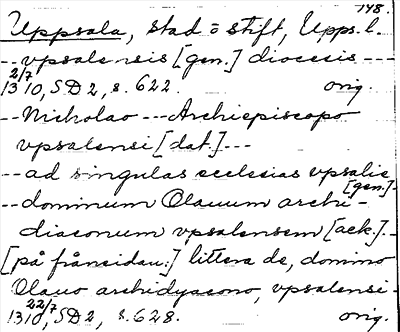 148.
Uppsala, stad o stift, Upps. l.
-- vpsalensis [gen.] diocesis ---
2/7
1310, SD 2, s. 622. orig.
-- Nicholao --- Archiepiscopo
vpsalensi [dat.] ---
-- ad singulas ecclesias vpsalie
[gen.] -
-- dominum Olauum archi-
diaconum vpsalensem [ack.] --
[på frånsidan:] littera de, domino
Olauo archidyacono, vpsalensi -
22/7
1310, SD 2, s. 628. orig.